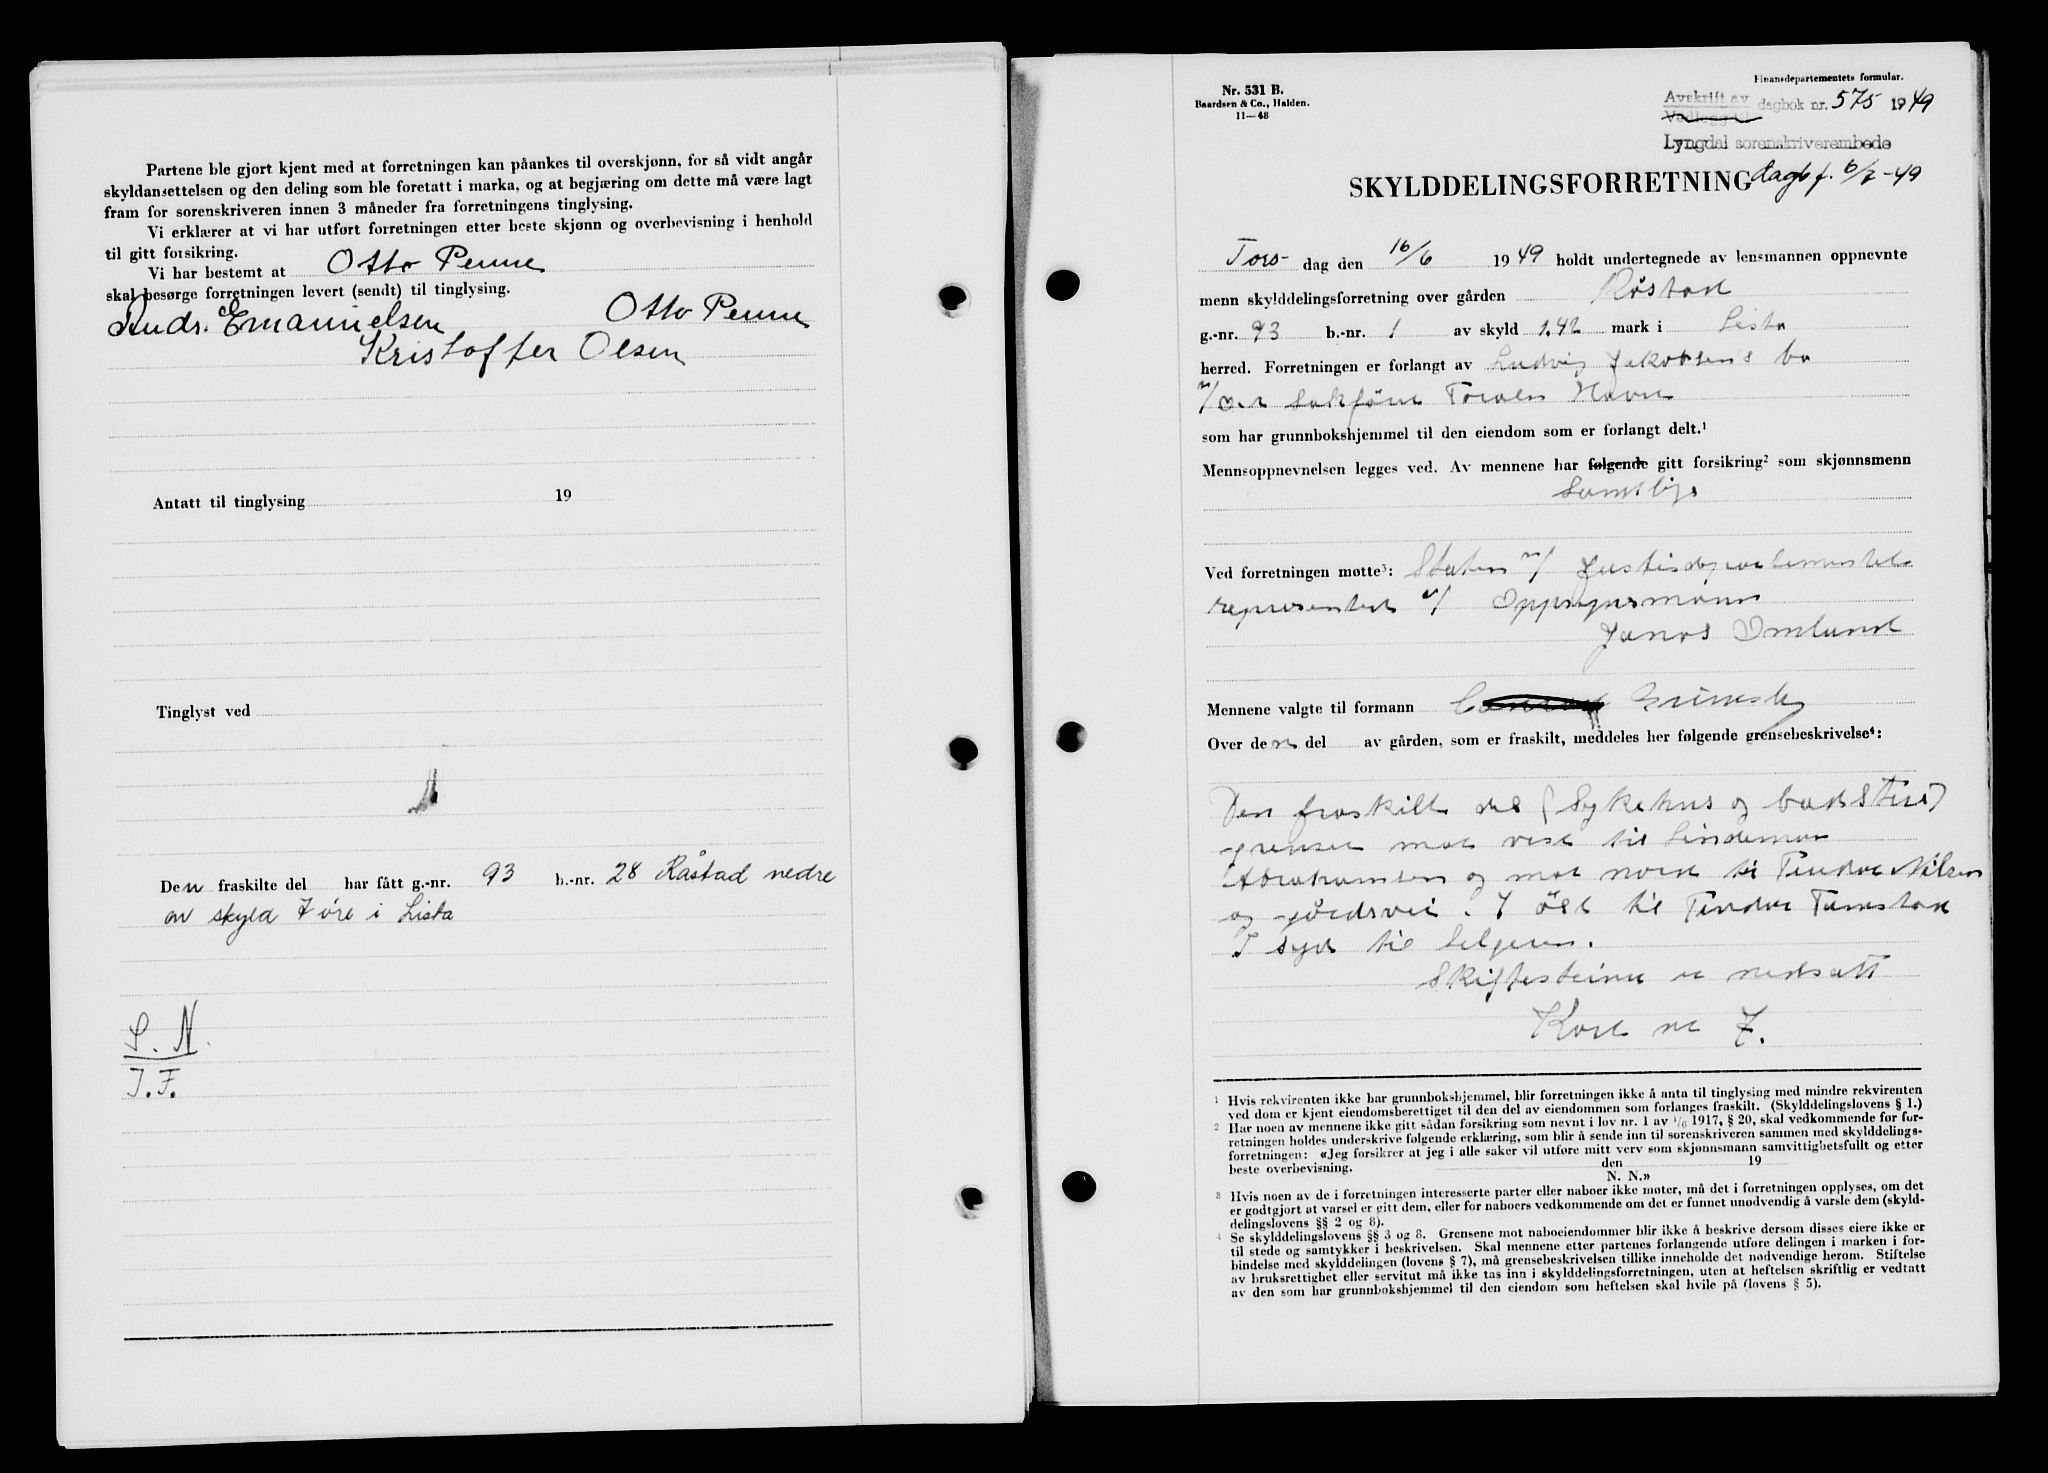 Partene ble gjort kjent med at forretningen kan påankes til overskjønn, for så vidt angår
skyldansettelsen og den deling som ble foretatt i marka, og at begjæring om dette må være lagt
fram for sorenskriveren innen 3 måneder fra forretningens tinglysing.
Vi erklærer at vi har utført forretningen etter beste skjønn og overbevisning i henhold
til gitt forsikring.
Vi har bestemt at Otto Penne
skal besørge forretningen levert (sendt) til tinglysing.
Andr. Emanuelsen Otto Penne
Kristoffer Olsen
Antatt til tinglysing 19
Tinglyst ved
Den fraskilte del har fått g.-nr. 93 b.-nr. 28 Råstad nedre
av skyld 7 øre i Lista
S. N.
J. F.
Nr. 531 B.
Baardsen & Co., Halden.
11—48
Finansdepartementets formular.
Avskrift av dagbok nr. 575 1949
Vedlegg til
Lyngdal sorenskriverembede
SKYLDDELINGSFORRETNING dagbf. 6/7-49
Tors- dag den 16/6 1949 holdt undertegnede av lensmannen oppnevnte
menn skylddelingsforretning over gården Røstad
g.-nr. 93 b.-nr. 1 av skyld 1.42 mark i Lista
herred. Forretningen er forlangt av Ludvig Jakobsens bo
v/ sakfører Toralv Havn
som har grunnbokshjemmel til den eiendom som er forlangt delt.¹
Mennsoppnevnelsen legges ved. Av mennene har følgende gitt forsikring² som skjønnsmenn
Samtlige
Ved forretningen møtte³: Staten v/ Justisdepartementet
representert v/ Oppsynsmann
Jonas Omland
Mennene valgte til formann
Over den del av gården, som er fraskilt, meddeles her følgende grensebeskrivelse⁴:
Den fraskilt del (Sykehus og badstue)
grenser mot vest til Lindeman
Abrahamsen og mot nord til Teodor Nilsen
og gårdsvei. I øst til Teodor Tamstad
I syd til Selgeren.
Skiftesteine er nedsatt
Kart nr 7.
¹ Hvis rekvirenten ikke har grunnbokshjemmel, blir forretningen ikke å anta til tinglysing med mindre rekvirenten
ved dom er kjent eiendomsberettiget til den del av eiendommen som forlanges fraskilt. (Skylddelingslovens § 1.)
² Har noen av mennene ikke gitt sådan forsikring som nevnt i lov nr. 1 av 1/6 1917, § 20, skal vedkommende før for-
retningen holdes underskrive følgende erklæring, som blir å sende inn til sorenskriveren sammen med skylddelings-
forretningen: «Jeg forsikrer at jeg i alle saker vil utføre mitt verv som skjønnsmann samvittighetsfullt og etter
beste overbevisning. den 19
N. N.»
³ Hvis noen av de i forretningen interesserte parter eller naboer ikke møter, må det i forretningen opplyses, om det
er godtgjort at varsel er gitt dem, eller for naboers vedkommende om det er funnet unødvendig å varsle dem (skyld-
delingslovens §§ 2 og 8).
⁴ Se skylddelingslovens §§ 3 og 8. Grensene mot naboeiendommer blir ikke å beskrive dersom disses eiere ikke er
til stede og samtykker i beskrivelsen. Skal mennene etter partenes forlangende utføre delingen i marken i for-
bindelse med skylddelingen (lovens § 7), må grensebeskrivelsen tillike inneholde det nødvendige herom. Stiftelse
av bruksrettighet eller servitut må ikke tas inn i skylddelingsforretningen, uten at heftelsen skriftlig er vedtatt
av den som har grunnbokshjemmel til den eiendom som heftelsen skal hvile på (lovens § 5).